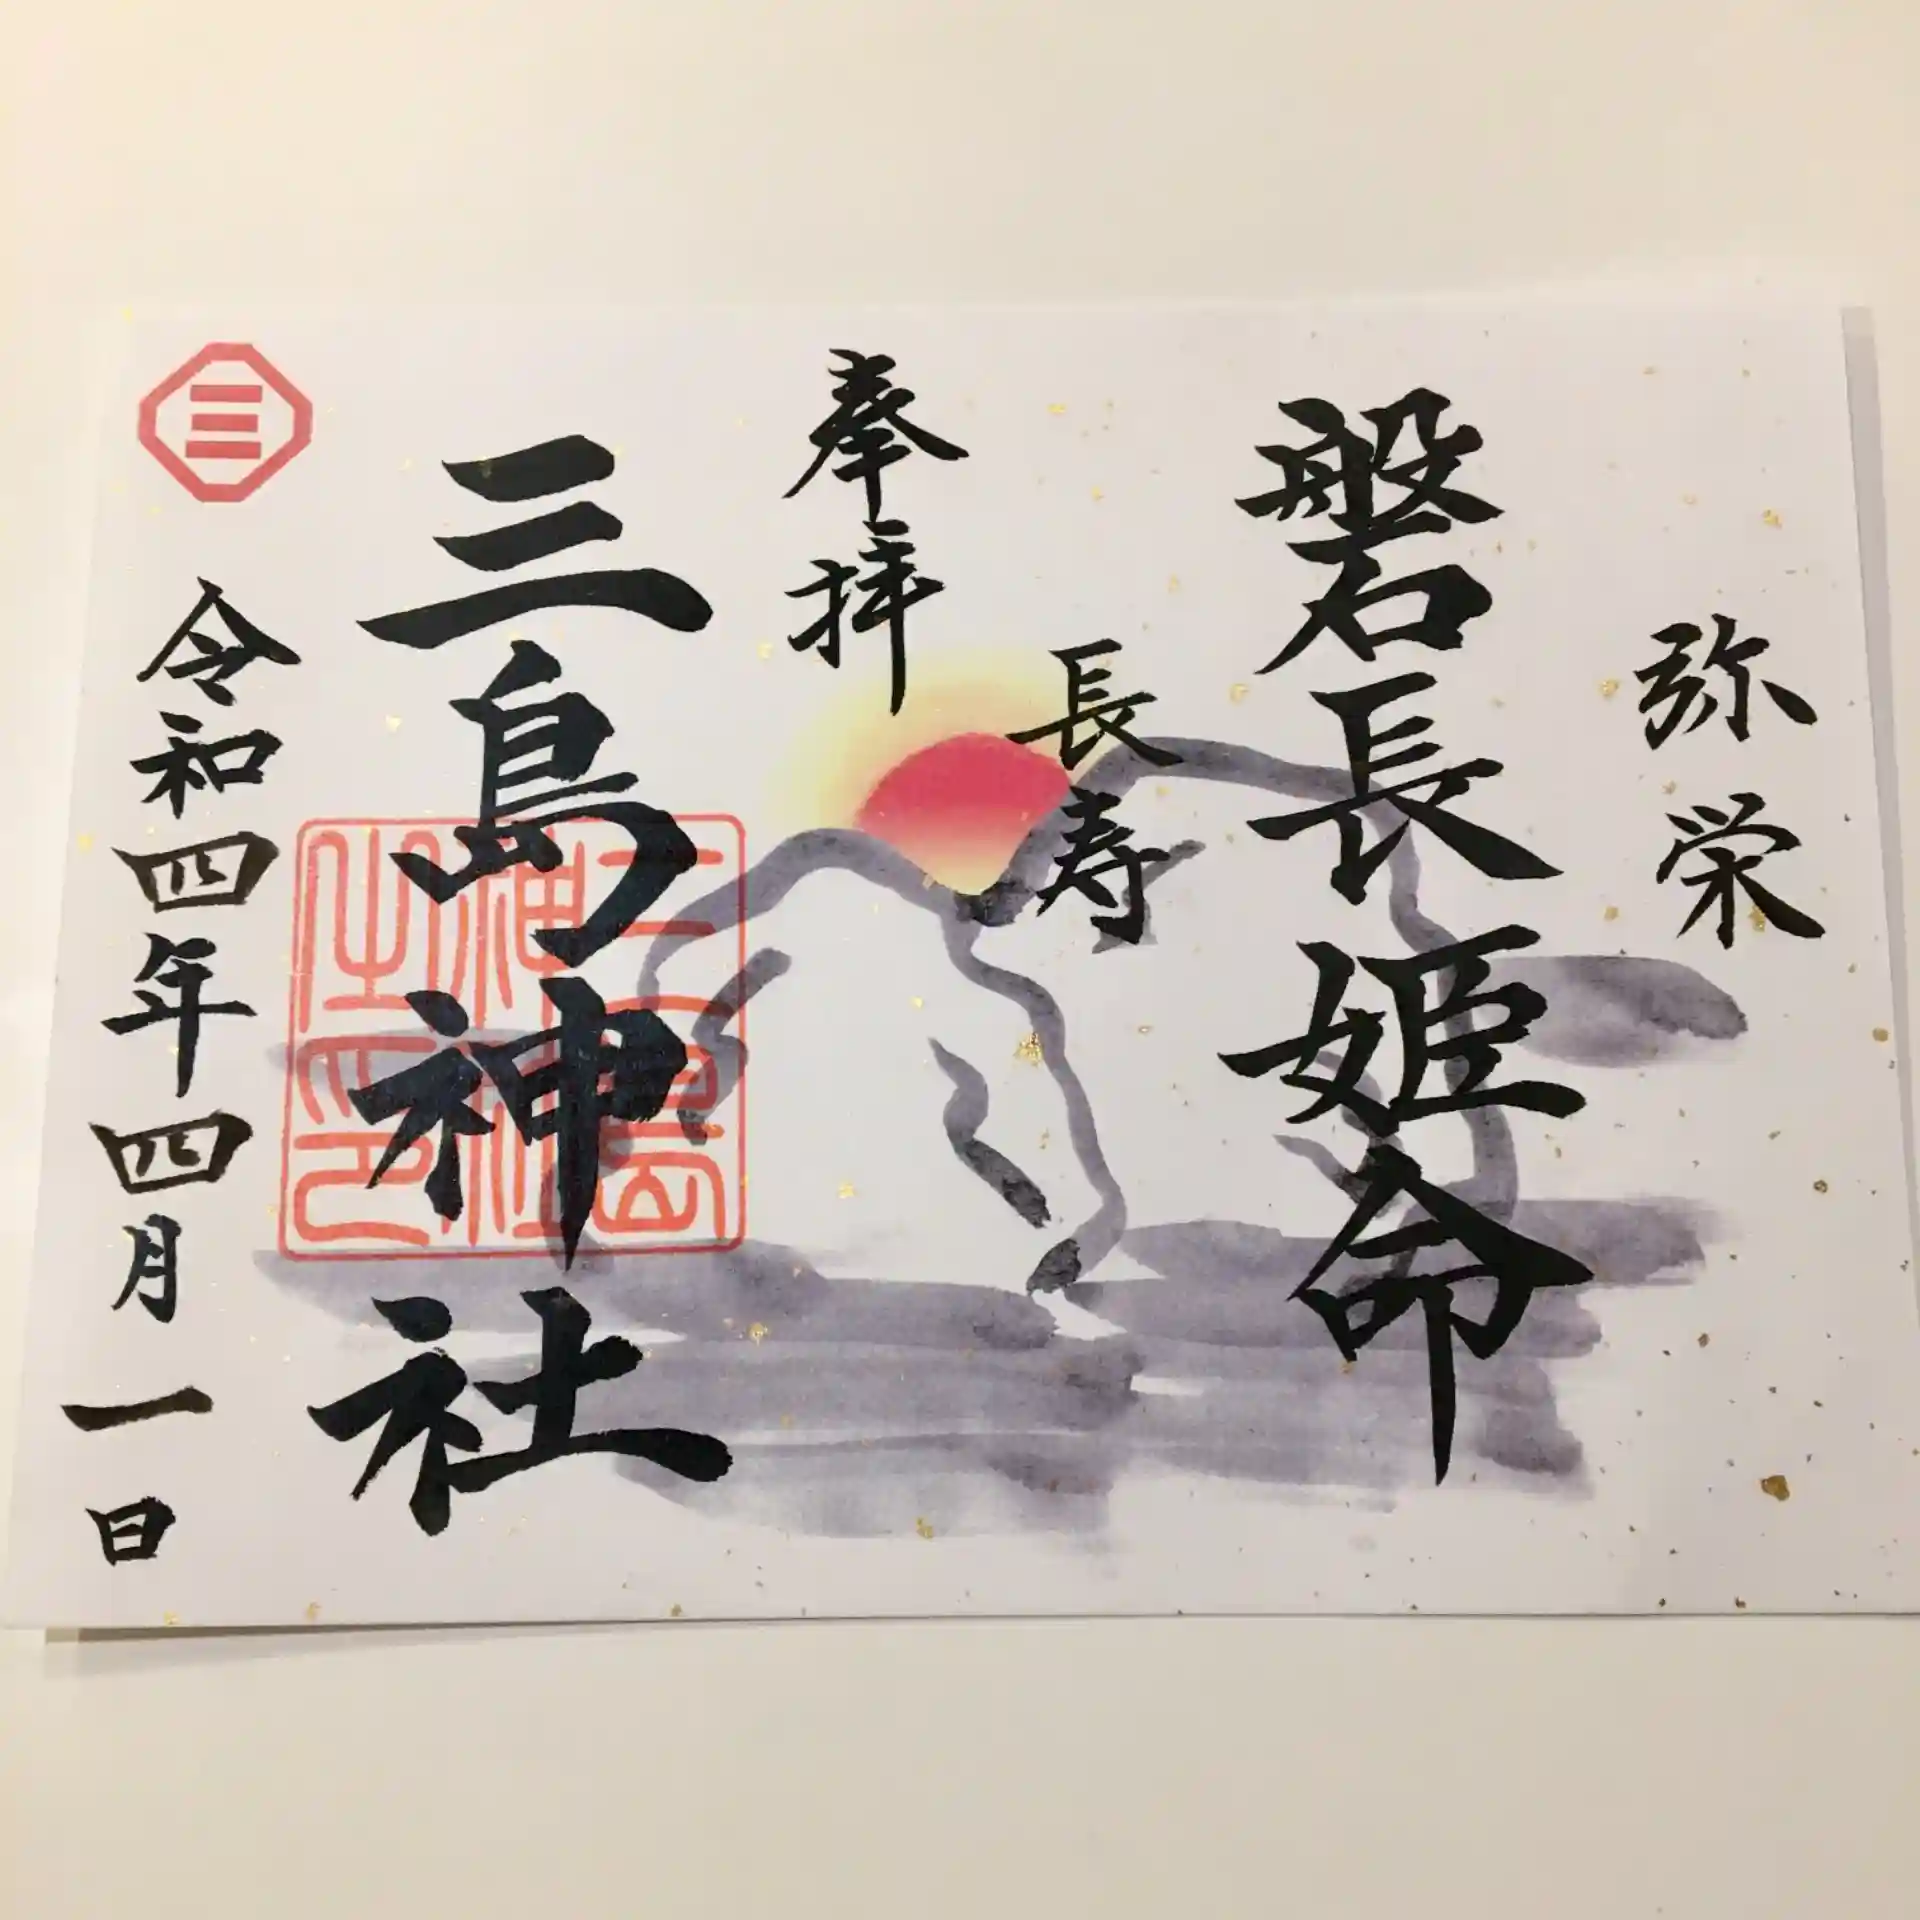 弥栄
磐長姫命
長寿
奉拝
三島神社
三島神社之印
三
令和四年四月一日